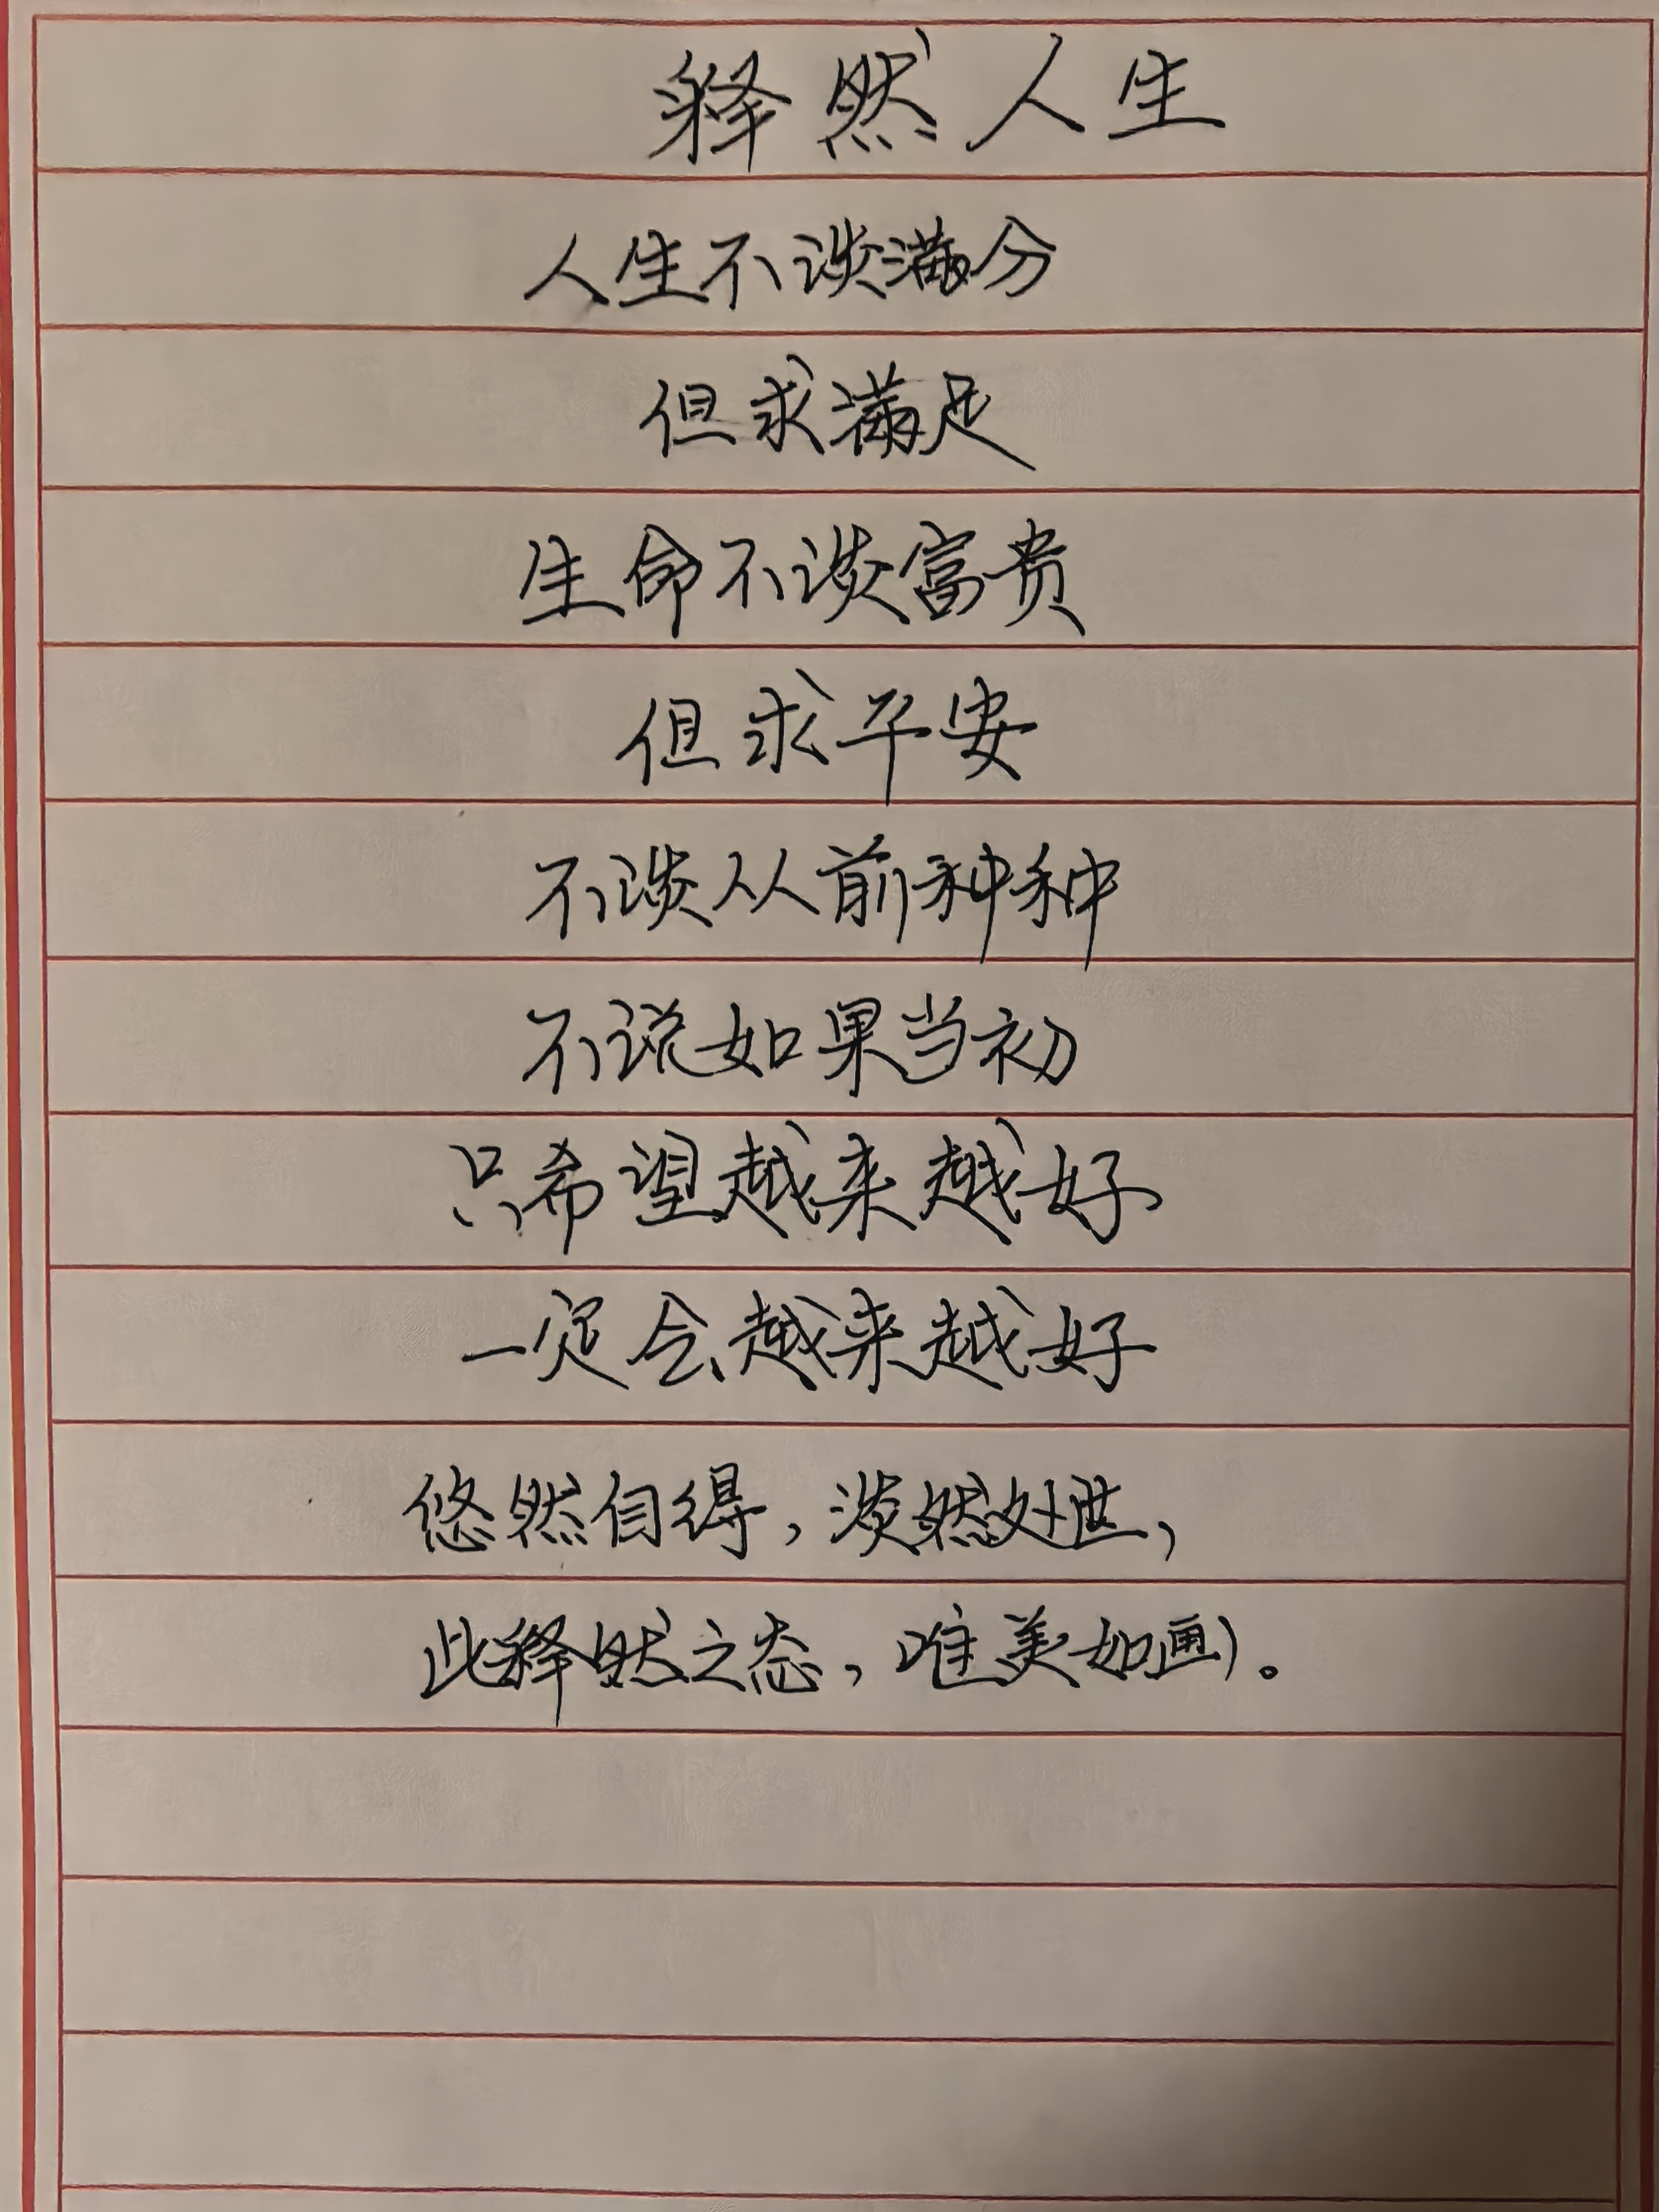 释然人生
人生不谈满分
但求满足
生命不谈富贵
但求平安
不谈从前种种
不说如果当初
只希望越来越好
一定会越来越好
悠然自得，淡然处世，
此释然之态，唯美如画。